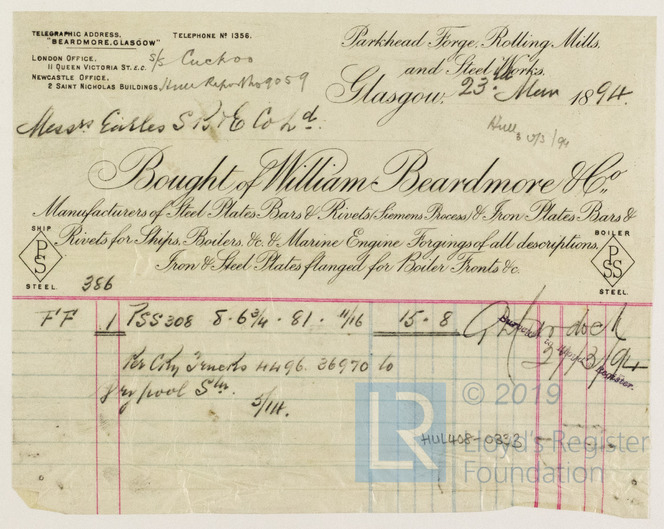 TELEGRAPHIC ADDRESS,
"BEARDMORE, GLASGOW"
TELEPHONE Nº 1356.
LONDON OFFICE,
11 QUEEN VICTORIA ST. E.C.
NEWCASTLE OFFICE,
2 SAINT NICHOLAS BUILDINGS.
s/s Cuckoo
Hull Report No 9059
Parkhead Forge, Rolling Mills,
and Steel Works,
Glasgow, 23rd Mar 1894.
Messrs Earles S B & E Co Ld.
Hull
Bought of William Beardmore & Co.,
Manufacturers of Steel Plates Bars & Rivets (Siemens Process) & Iron Plates Bars &
Rivets for Ships, Boilers, &c. & Marine Engine Forgings of all descriptions,
Iron & Steel Plates flanged for Boiler Fronts &c.
SHIP
PS
STEEL.
BOILER
PSS
STEEL.
386
FF 1 PSS 308 8 - 6 3/4 - 81 - 11/16 15 - 8
24/3/94
Per Trucks 4496. 36970 to
Drypool Stn.
5/14.
Register.
© 2019
LR
HUL408-0333
Lloyd's Register
Foundation